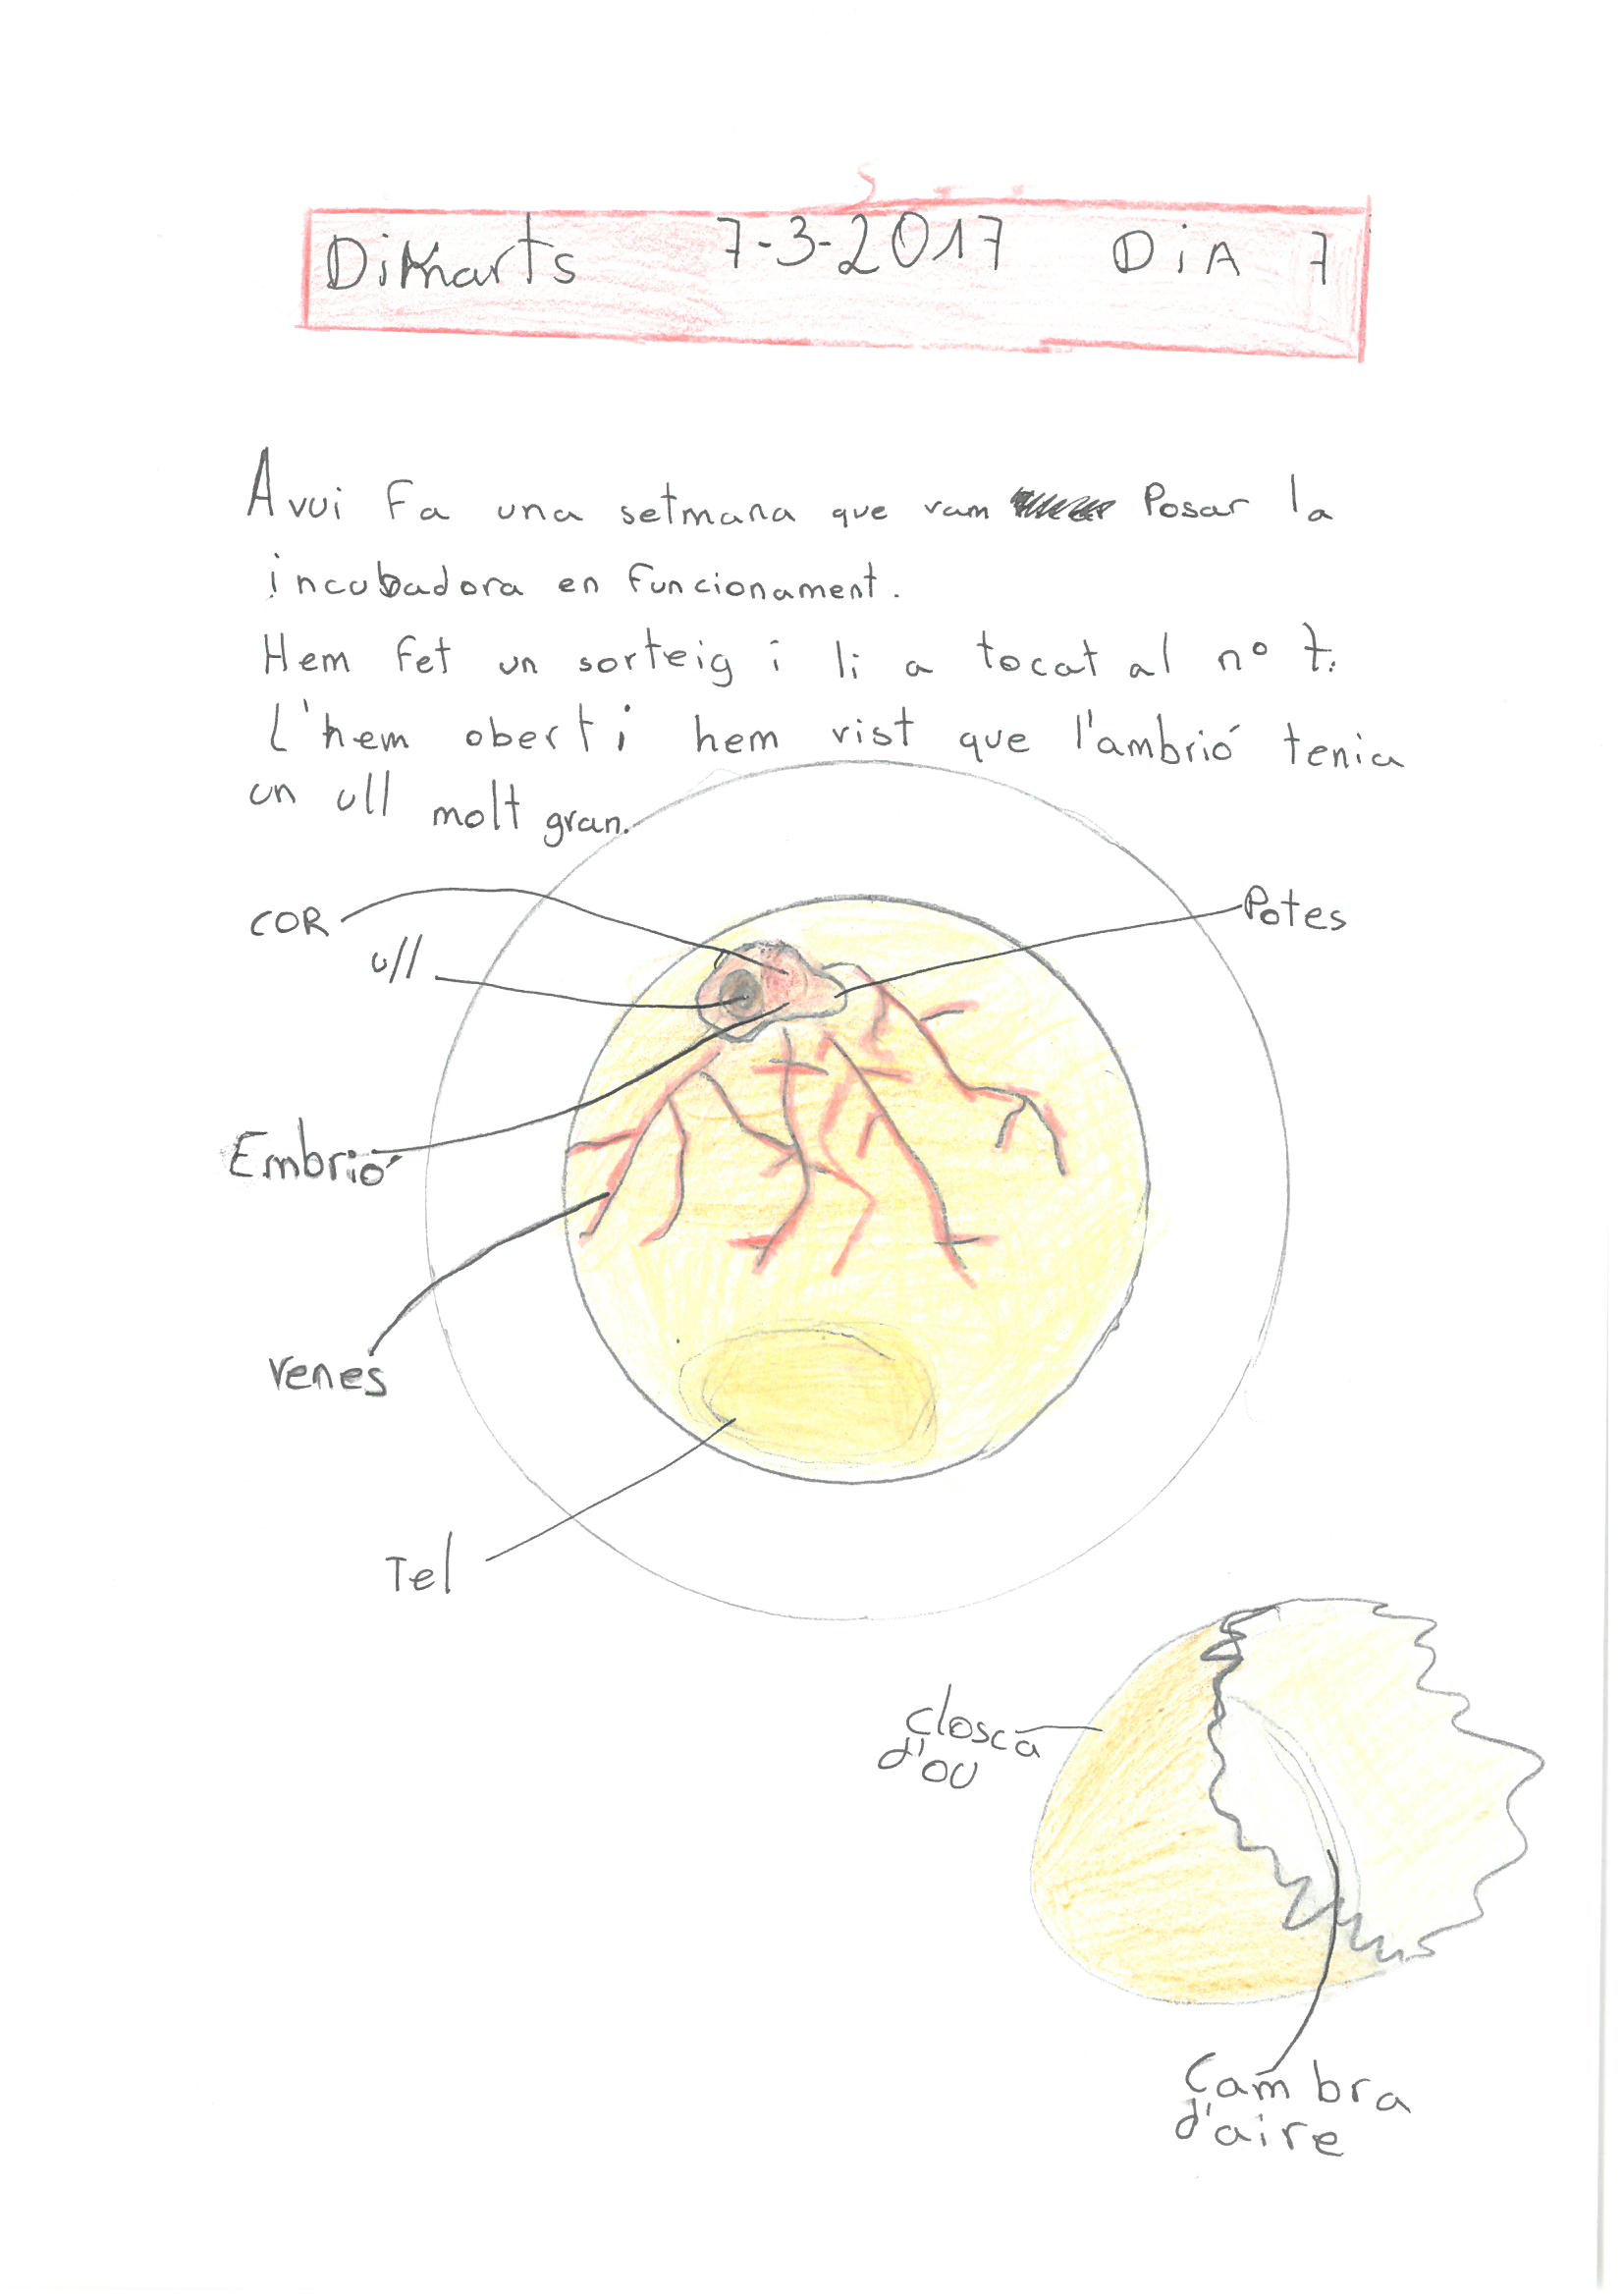 Dimarts 7-3-2017 DiA 7
Avui Fa una setmana que vam Posar la
incubadora en Funcionament.
Hem Fet un sorteig i li a tocat al nº 7.
L'hem obert i hem vist que l'ambrió tenia
un ull molt gran.
COR
Potes
ull
Embrió
Venes
Tel
Closca
d'ou
Cambra
d'aire